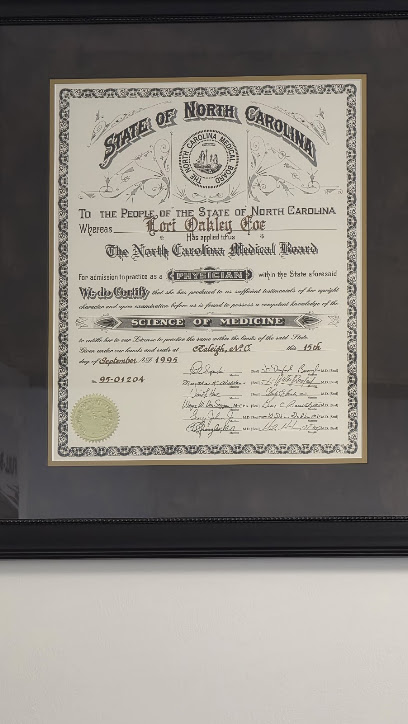 STATE OF NORTH CAROLINA
THE NORTH CAROLINA MEDICAL BOARD
TO THE PEOPLE OF THE STATE OF NORTH CAROLINA
Whereas Lori Oakley Coe
Has applied to Us
The North Carolina Medical Board
For admission to practice as a PHYSICIAN within the State aforesaid
We do Certify that she has produced to us sufficient testimonials of her upright
character and upon examination before us is found to possess a competent knowledge of the
SCIENCE OF MEDICINE
to entitle her to our License to practice the same within the limits of the said State.
Given under our hands and seals at Raleigh, N.C. this 15th
day of September A.D. 1995
No. 95-01204